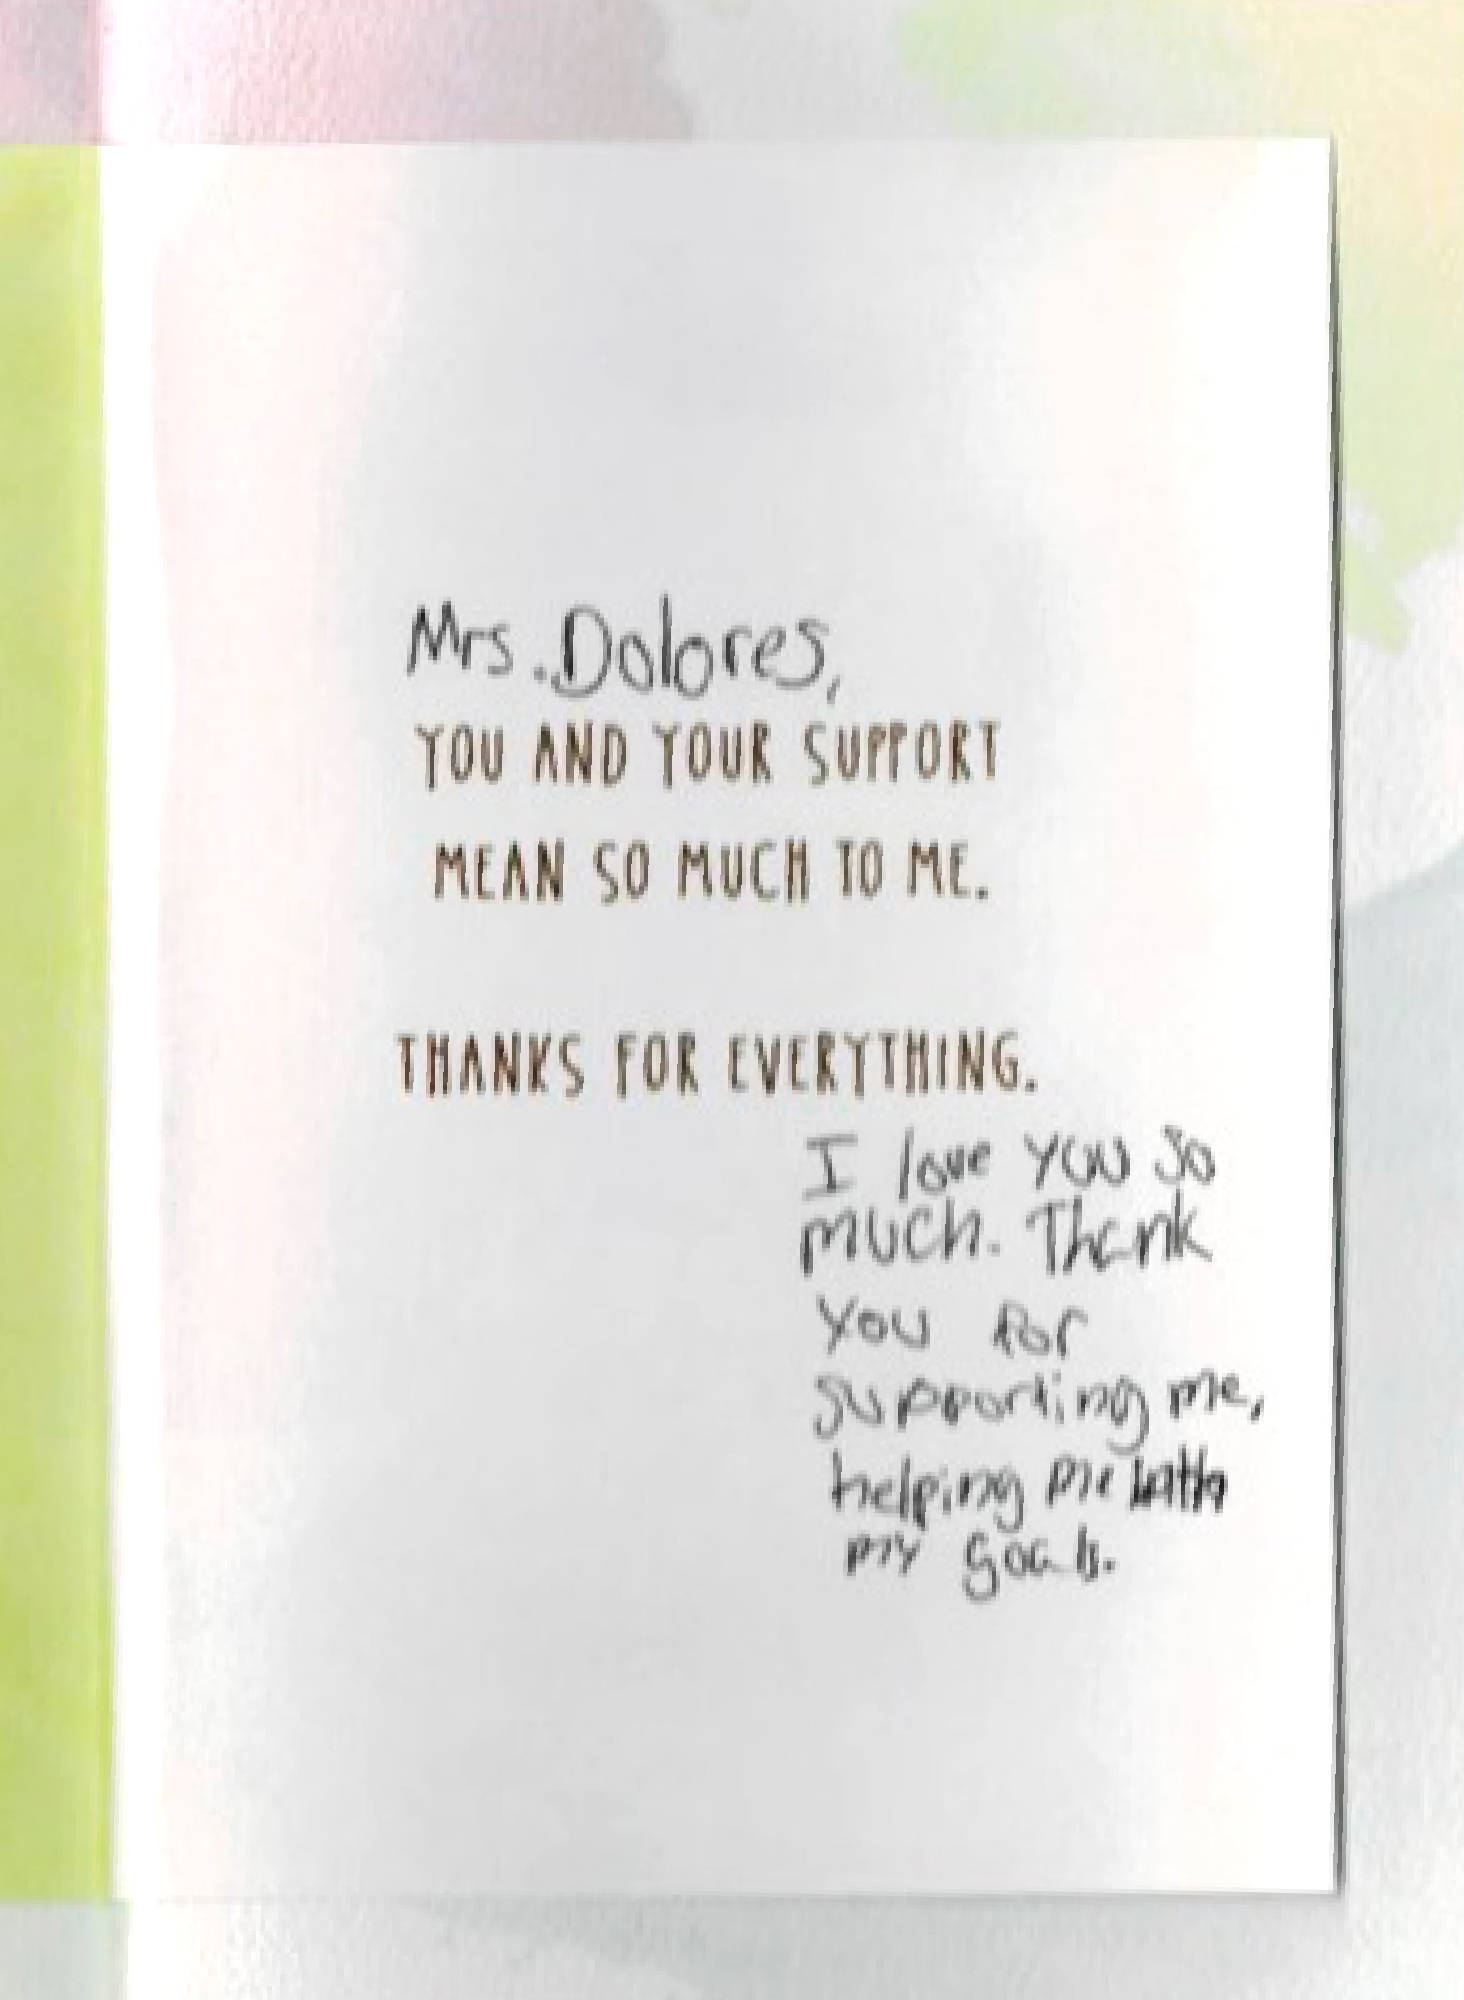 Mrs. Dolores,
YOU AND YOUR SUPPORT
MEAN SO MUCH TO ME.
THANKS FOR EVERYTHING.
I love you so
much. Thank
you for
supporting me,
helping me with
my goals.